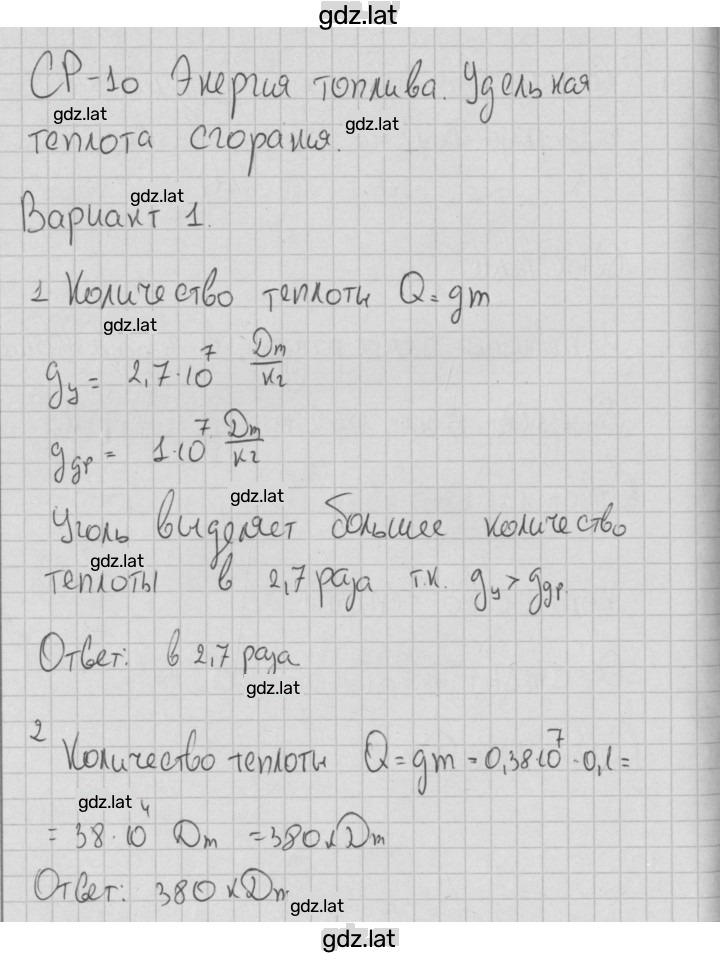 gdz.lat
СР-10 Энергия топлива. Удельная
gdz.lat
gdz.lat
теплота сгорания.
gdz.lat
Вариант 1.
1 Количество теплоты Q = qm
gdz.lat
qу = 2,7·10⁷ Дж/кг
qдр = 1·10⁷ Дж/кг
gdz.lat
Уголь выделяет большее количество
gdz.lat
теплоты в 2,7 раза т.к. qу > qдр.
Ответ: в 2,7 раза
gdz.lat
2 Количество теплоты Q = qm = 0,38·10⁷·0,1 =
gdz.lat
= 38·10⁴ Дж = 380 кДж
Ответ: 380 кДж.
gdz.lat
gdz.lat